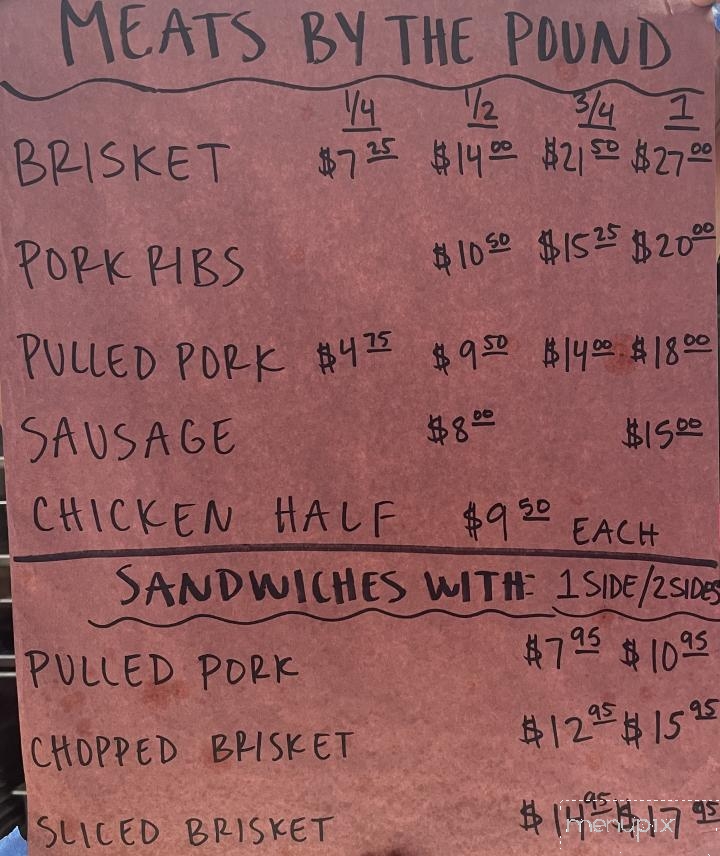 MEATS BY THE POUND
1/4 1/2 3/4 1
BRISKET $7 25 $14 00 $21 50 $27 00
PORK RIBS $10 50 $15 25 $20 00
PULLED PORK $4 75 $9 50 $14 00 $18 00
SAUSAGE $8 00 $15 00
CHICKEN HALF $9 50 EACH
SANDWICHES WITH: 1 SIDE/2 SIDES
PULLED PORK $7 95 $10 95
CHOPPED BRISKET $12 95 $15 95
SLICED BRISKET $14 95 $17 95
menupix